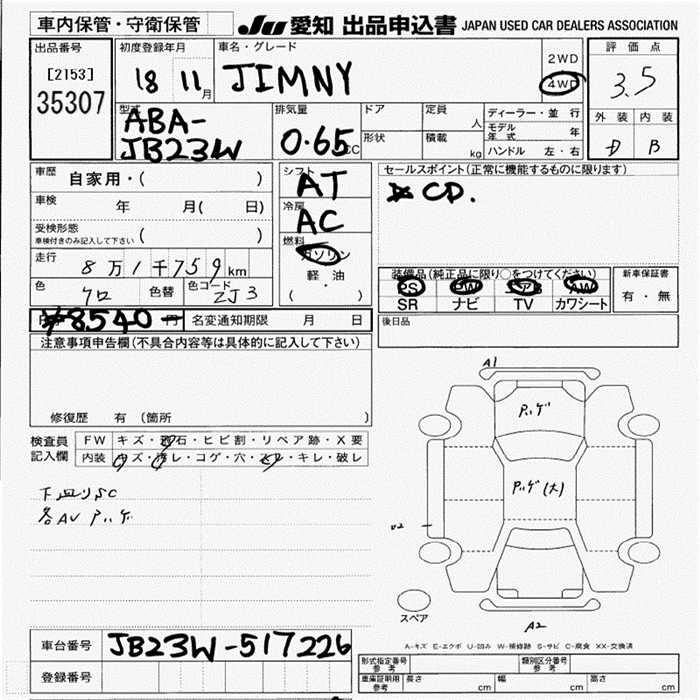 車内保管・守衛保管 JU 愛知 出品申込書 JAPAN USED CAR DEALERS ASSOCIATION
出品番号 初度登録年月 車名・グレード 2WD 評価点
[2153] 18 11月 JIMNY 4WD 3.5
35307
型式 排気量 ドア 定員 人 ディーラー・並行 外装 内装
ABA- モデル年式 年
JB23W 0.65CC 形状 積載 kg ハンドル 左・右 D B
車歴 自家用・( ) シフト セールスポイント(正常に機能するものに限ります)
AT CD.
車検 年 月( 日) 冷房
AC
受検形態 ( )
車検付きのみ記入して下さい
燃料
ガソリン
走行 8万1千759km 軽・油
( )
装備品(純正品に限り○をつけてください) 新車保証書
色 クロ 色替 色コード ZJ3
PS PW エアB AW 有・無
SR ナビ TV カワシート
¥8540 円 名変通知期限 月 日 後日品
注意事項申告欄(不具合内容等は具体的に記入して下さい)
A1
修復歴 有 (箇所
検査員 FW キズ・飛石・ヒビ割・リペア跡・X要
記入欄 内装 キズ・汚レ・コゲ・穴・スレ・キレ・破レ
下回りSC
A2
スペア
A-キズ E-エクボ U-凹み W-補修跡 S-サビ C-腐食 XX-交換済
車台番号 JB23W-517226
型式指定番号 参考 類別区分番号 参考
登録番号
車庫証明用 参考 長さ cm 幅 cm 高さ cm